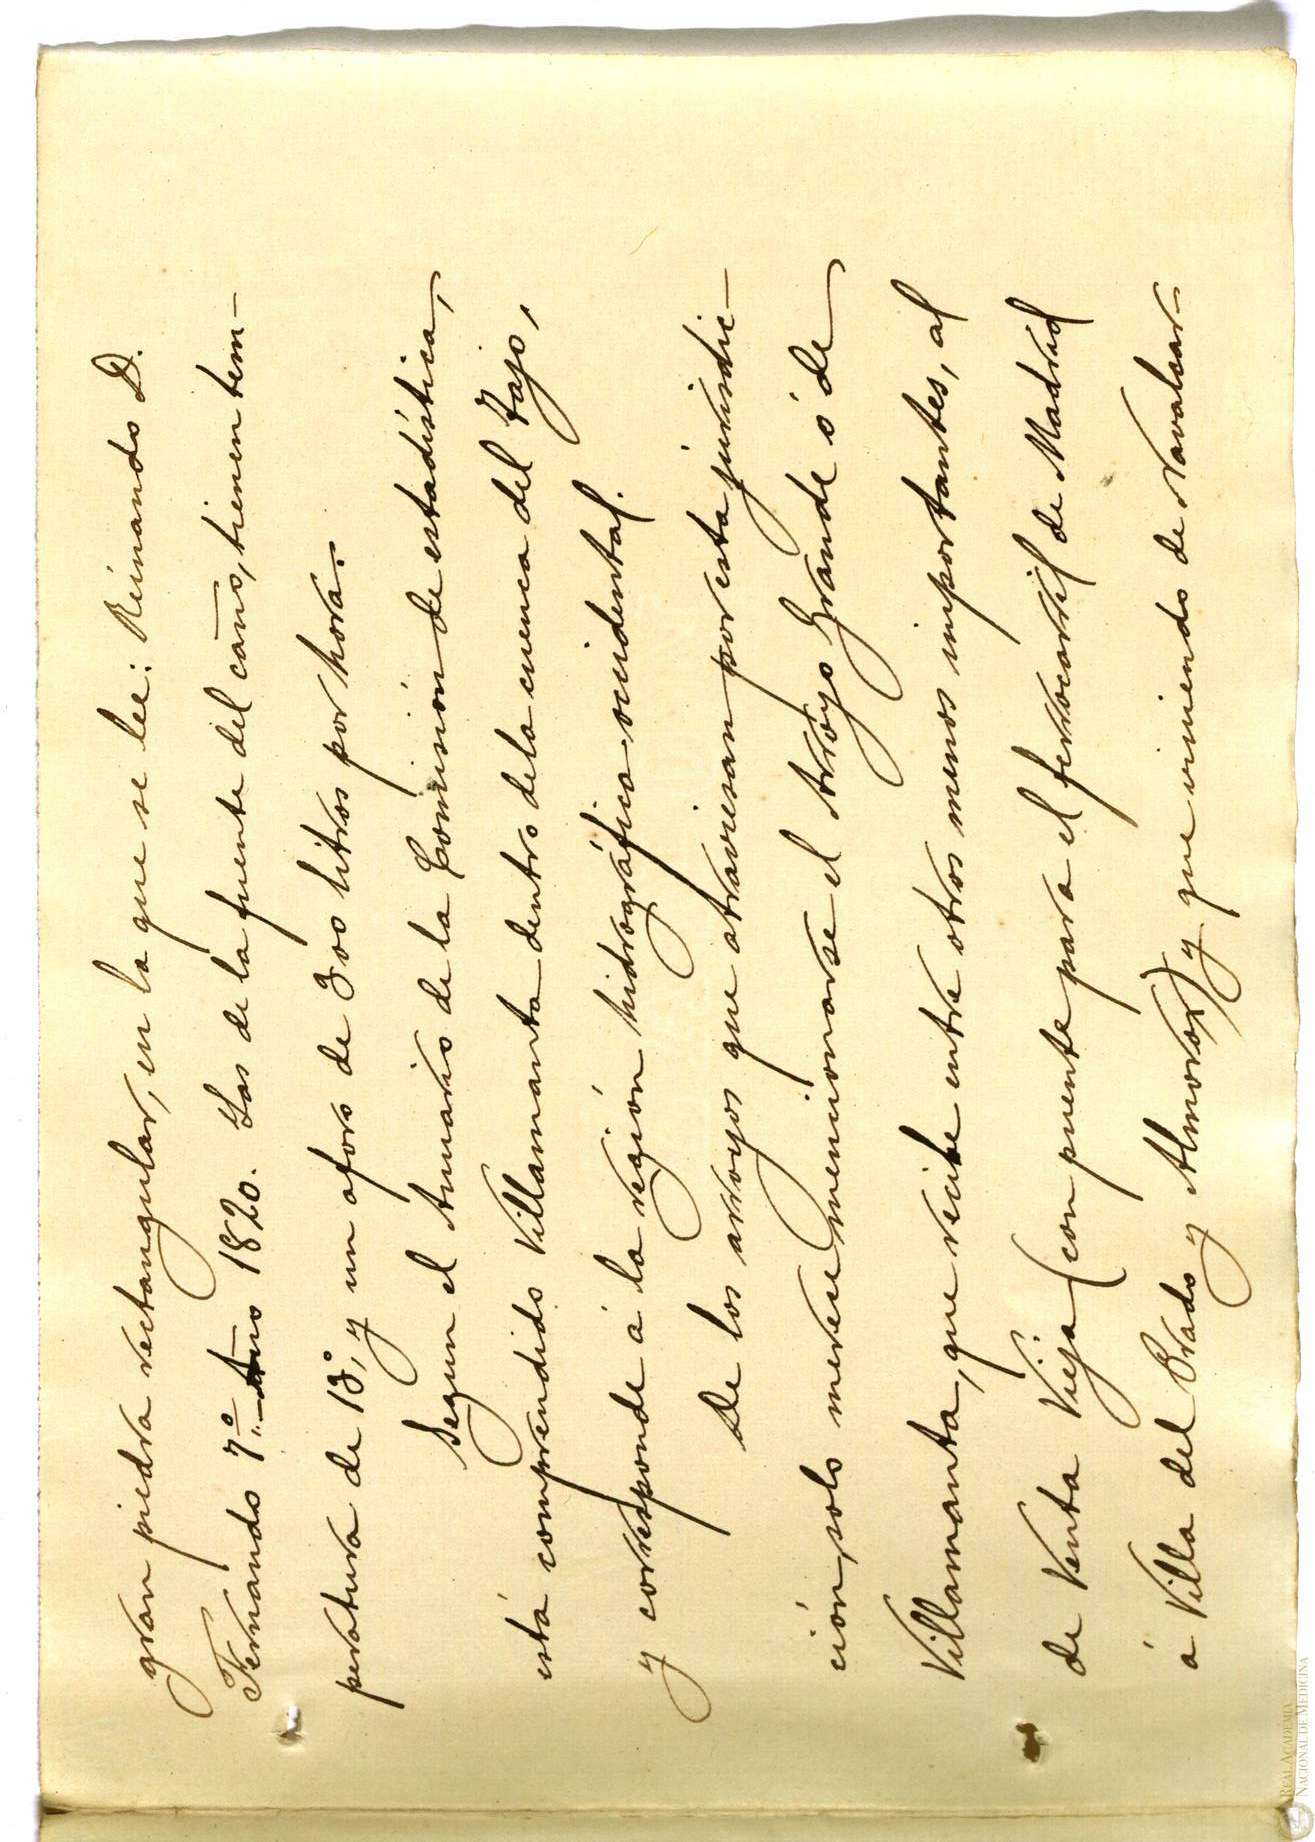 gran piedra rectangular, en la que se lee: Reinando D.
Fernando 7º. Año 1820. Las de la fuente del caño, tienen tem-
peratura de 13º, y un aforo de 300 litros por hora.
Segun el Anuario de la Comisión de estadística,
está comprendido Villamanta dentro de la cuenca del Tajo,
y corresponde á la región hidrográfica occidental.
De los arroyos que atraviesan por esta jurisdic-
ción, solo merece mencionarse el Arroyo Grande ó de
Villamanta, que recibe entre otros menos importantes, al
de Venta Vieja (con puente para el ferrocarril de Madrid
á Villa del Prado y Almorox) y que viniendo de Navalcar-
REAL ACADEMIA
NACIONAL DE MEDICINA